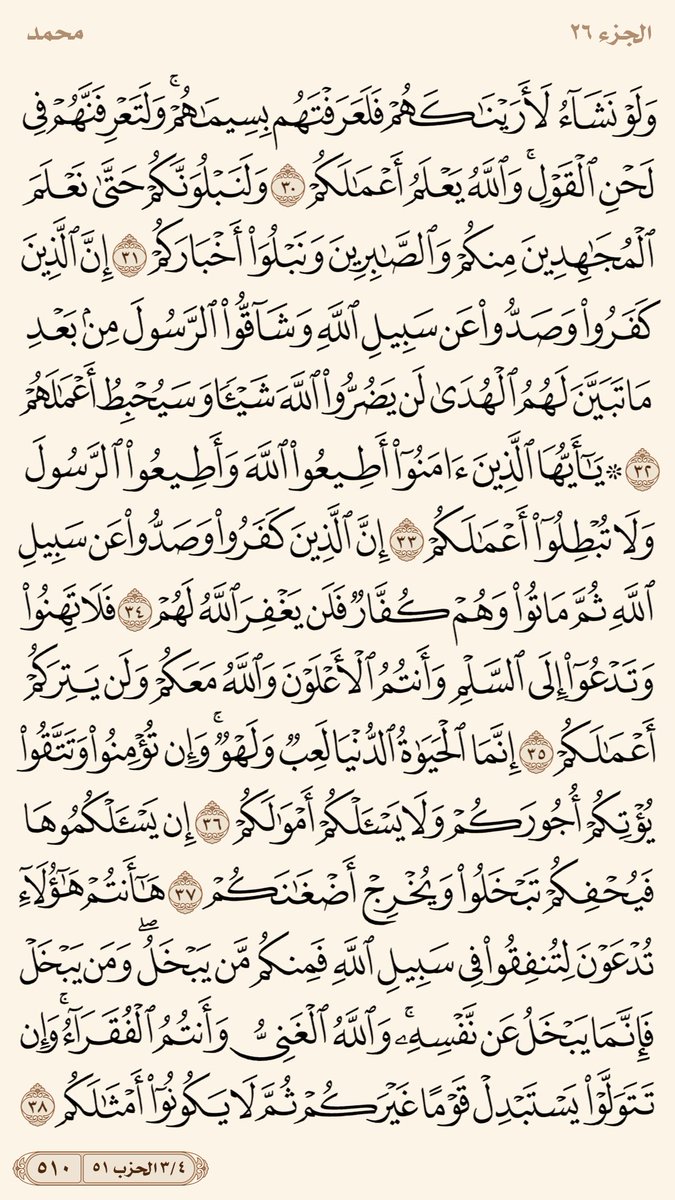 الجزء ٢٦ محمد
وَلَوۡ نَشَآءُ لَأَرَيۡنَٰكَهُمۡ فَلَعَرَفۡتَهُم بِسِيمَٰهُمۡۚ وَلَتَعۡرِفَنَّهُمۡ فِي
لَحۡنِ ٱلۡقَوۡلِۚ وَٱللَّهُ يَعۡلَمُ أَعۡمَٰلَكُمۡ ٣٠ وَلَنَبۡلُوَنَّكُمۡ حَتَّىٰ نَعۡلَمَ
ٱلۡمُجَٰهِدِينَ مِنكُمۡ وَٱلصَّٰبِرِينَ وَنَبۡلُوَاْ أَخۡبَارَكُمۡ ٣١ إِنَّ ٱلَّذِينَ
كَفَرُواْ وَصَدُّواْ عَن سَبِيلِ ٱللَّهِ وَشَآقُّواْ ٱلرَّسُولَ مِنۢ بَعۡدِ
مَا تَبَيَّنَ لَهُمُ ٱلۡهُدَىٰ لَن يَضُرُّواْ ٱللَّهَ شَيۡـٔٗا وَسَيُحۡبِطُ أَعۡمَٰلَهُمۡ
٣٢ ۞ يَٰٓأَيُّهَا ٱلَّذِينَ ءَامَنُوٓاْ أَطِيعُواْ ٱللَّهَ وَأَطِيعُواْ ٱلرَّسُولَ
وَلَا تُبۡطِلُوٓاْ أَعۡمَٰلَكُمۡ ٣٣ إِنَّ ٱلَّذِينَ كَفَرُواْ وَصَدُّواْ عَن سَبِيلِ
ٱللَّهِ ثُمَّ مَاتُواْ وَهُمۡ كُفَّارٞ فَلَن يَغۡفِرَ ٱللَّهُ لَهُمۡ ٣٤ فَلَا تَهِنُواْ
وَتَدۡعُوٓاْ إِلَى ٱلسَّلۡمِ وَأَنتُمُ ٱلۡأَعۡلَوۡنَ وَٱللَّهُ مَعَكُمۡ وَلَن يَتِرَكُمۡ
أَعۡمَٰلَكُمۡ ٣٥ إِنَّمَا ٱلۡحَيَوٰةُ ٱلدُّنۡيَا لَعِبٞ وَلَهۡوٞۚ وَإِن تُؤۡمِنُواْ وَتَتَّقُواْ
يُؤۡتِكُمۡ أُجُورَكُمۡ وَلَا يَسۡـَٔلۡكُمۡ أَمۡوَٰلَكُمۡ ٣٦ إِن يَسۡـَٔلۡكُمُوهَا
فَيُحۡفِكُمۡ تَبۡخَلُواْ وَيُخۡرِجۡ أَضۡغَٰنَكُمۡ ٣٧ هَٰٓأَنتُمۡ هَٰٓؤُلَآءِ
تُدۡعَوۡنَ لِتُنفِقُواْ فِي سَبِيلِ ٱللَّهِ فَمِنكُم مَّن يَبۡخَلُۖ وَمَن يَبۡخَلۡ
فَإِنَّمَا يَبۡخَلُ عَن نَّفۡسِهِۦۚ وَٱللَّهُ ٱلۡغَنِيُّ وَأَنتُمُ ٱلۡفُقَرَآءُۚ وَإِن
تَتَوَلَّوۡاْ يَسۡتَبۡدِلۡ قَوۡمًا غَيۡرَكُمۡ ثُمَّ لَا يَكُونُوٓاْ أَمۡثَٰلَكُم ٣٨
٣/٤ الحزب ٥١ ٥١٠